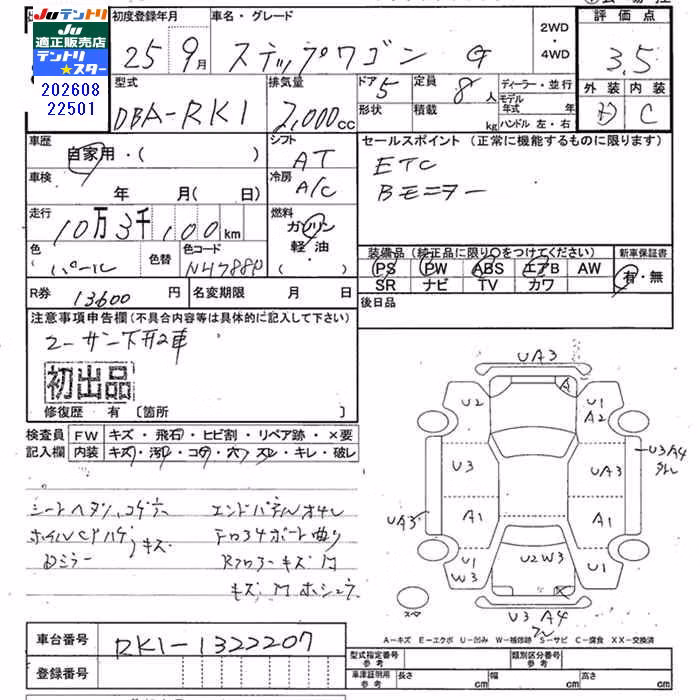 Juテントリ
Ju適正販売店
テントリ
★スター
202608
22501
初度登録年月
25 9月
車名・グレード
ステップワゴン G
2WD
・
4WD
評価点
3.5
型式
DBA-RK1
排気量
2,000cc
ドア 5
定員 8人
形状
積載 kg
ディーラー・並行
モデル年式 年
ハンドル 左・右
外装
内装
D
C
車歴
自家用・( )
シフト
AT
セールスポイント (正常に機能するものに限ります)
ETC
Bモニター
車検
年 月( 日)
冷房
A/C
走行
10万3千100km
燃料
ガソリン
軽・油
・( )
色
パール
色替
色コード
NH788P
装備品 (純正品に限り○をつけてください)
PS PW ABS エアB AW
SR ナビ TV カワ
新車保証書
有・無
R券 13600円
名変期限 月 日
後日品
注意事項申告欄 (不具合内容等は具体的に記入して下さい)
ユーザー下取車
初出品
修復歴 有 〔箇所 〕
検査員
記入欄
FW キズ・飛石・ヒビ割・リペア跡・×要
内装 キズ・汚レ・コゲ・穴・スレ・キレ・破レ
シートヘタリ、コゲ穴
エンドパネルオサレ
ホイルCPハゲ、キズ
フロアサポート曲り
Dミラー
Rフロアーキズ凹
キズ凹ホシュウ
UA3
A
U2
U1
A2
U3
UA3
U3A4
UA3
A1
A1
U1
W3
U2W3
U1
スペア
U3 A4
A-キズ E-エクボ U-凹み W-補修跡 S-サビ C-腐食 XX-交換済
車台番号
RK1-1322207
登録番号
型式指定番号
参考
類別区分番号
参考
車庫証明用
参考
長さ cm
幅 cm
高さ cm